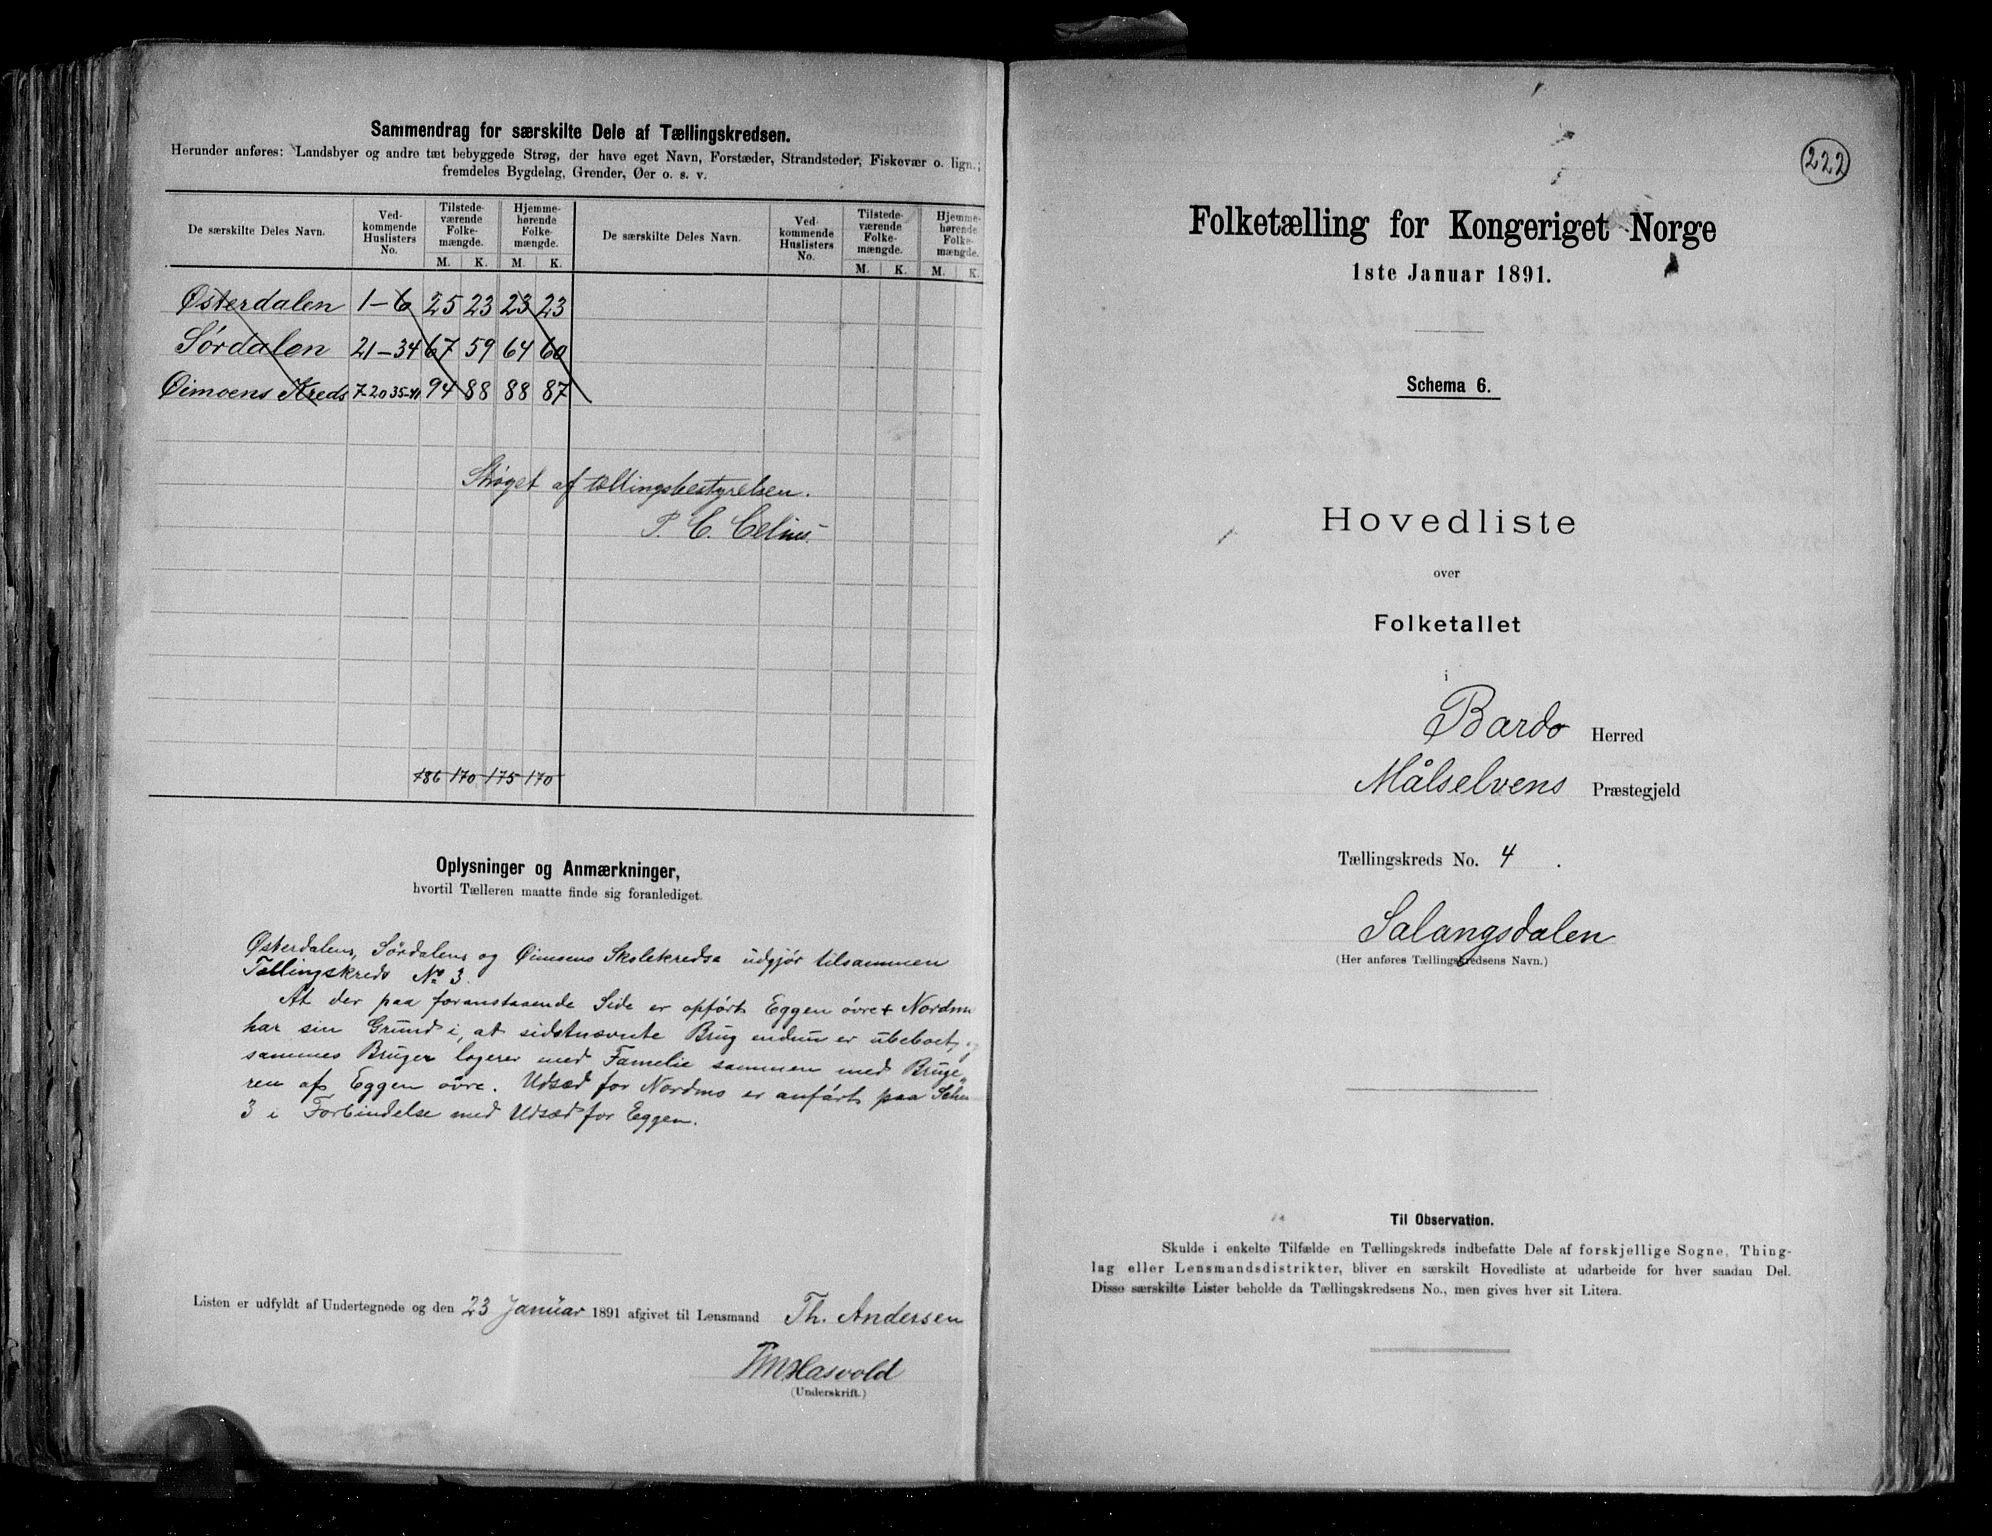 Sammendrag for særskilte Dele af Tællingskredsen.
Herunder anføres: Landsbyer og andre tæt bebyggede Strøg, der have eget Navn, Forstæder, Strandsteder, Fiskevær o. lign.;
fremdeles Bygdelag, Grender, Øer o. s. v.
De særskilte Deles Navn.
Ved-
kommende
Huslisters
No.
Tilstede-
værende
Folke-
mængde.
Hjemme-
hørende
Folke-
mængde.
M. K. M. K.
De særskilte Deles Navn.
Ved-
kommende
Huslisters
No.
Tilstede-
værende
Folke-
mængde.
Hjemme-
hørende
Folke-
mængde.
M. K. M. K.
Østerdalen 1-6 25 23 23 23
Sørdalen 21-34 67 59 64 60
Øimoens Kreds 7-20 35-41 94 88 88 87
Strøget af tællingsbestyrelsen.
P. C. Celius
186 170 175 170
Oplysninger og Anmærkninger,
hvortil Tælleren maatte finde sig foranlediget.
Østerdalens, Sördalens og Øimoens Skolekredse udgjör tilsammen
Tællingskreds No 3.
At der paa foranstaaende Side er opført Eggen övre + Nordmo
har sin Grund i, at sidstnævnte Brug endnu er ubeboet, og
sammes Bruger logerer med Famelie sammen med Bruge-
ren af Eggen övre. Udsæd for Nordmo er anført paa
3 i Forbindelse med Udsæd for Eggen.
Listen er udfyldt af Undertegnede og den 23 Januar 1891 afgivet til Lensmand Th. Andersen
Hasvold
(Underskrift.)
222
Folketælling for Kongeriget Norge
1ste Januar 1891.
Schema 6.
Hovedliste
over
Folketallet
i
Bardo Herred
Målselvens Præstegjeld
Tællingskreds No. 4.
Salangsdalen
(Her anføres Tællingskredsens Navn.)
Til Observation.
Skulde i enkelte Tilfælde en Tællingskreds indbefatte Dele af forskjellige Sogne, Thing-
lag eller Lensmandsdistrikter, bliver en særskilt Hovedliste at udarbeide for hver saadan Del.
Disse særskilte Lister beholde da Tællingskredsens No., men gives hver sit Litera.